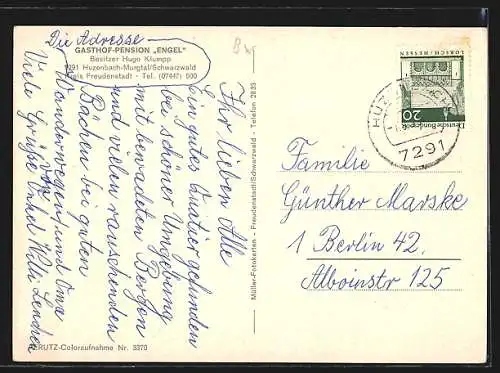 Die Adresse
GASTHOF-PENSION „ENGEL"
Besitzer Hugo Klumpp
7291 Huzenbach-Murgtal/Schwarzwald
Kreis Freudenstadt - Tel. (07447) 600
Ihr lieben Alle
Ein gutes Quartier gefunden
bei schöner Umgebung
mit bewaldeten Bergen
und vielen rauschenden
Bächen bei guten
Wanderwegen, und
Viele Grüße Onkel Willi
von Oma
KRÜTZ-Coloraufnahme Nr. 3370
Müller-Fotokarten - Freudenstadt/Schwarzwald - Telefon 2833
LORSCH/HESSEN
Deutsche Bundespost
20
7291
Familie
Günther Marske
1 Berlin 42.
Alboinstr 125